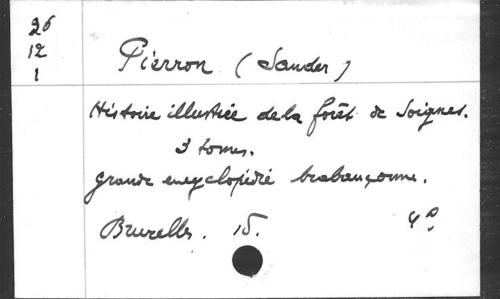 26
12
1
Pierron (Sander)
Histoire illustrée de la forêt de Soignes.
3 tomes.
grande encyclopédie brabançonne.
Bruxelles. 4°